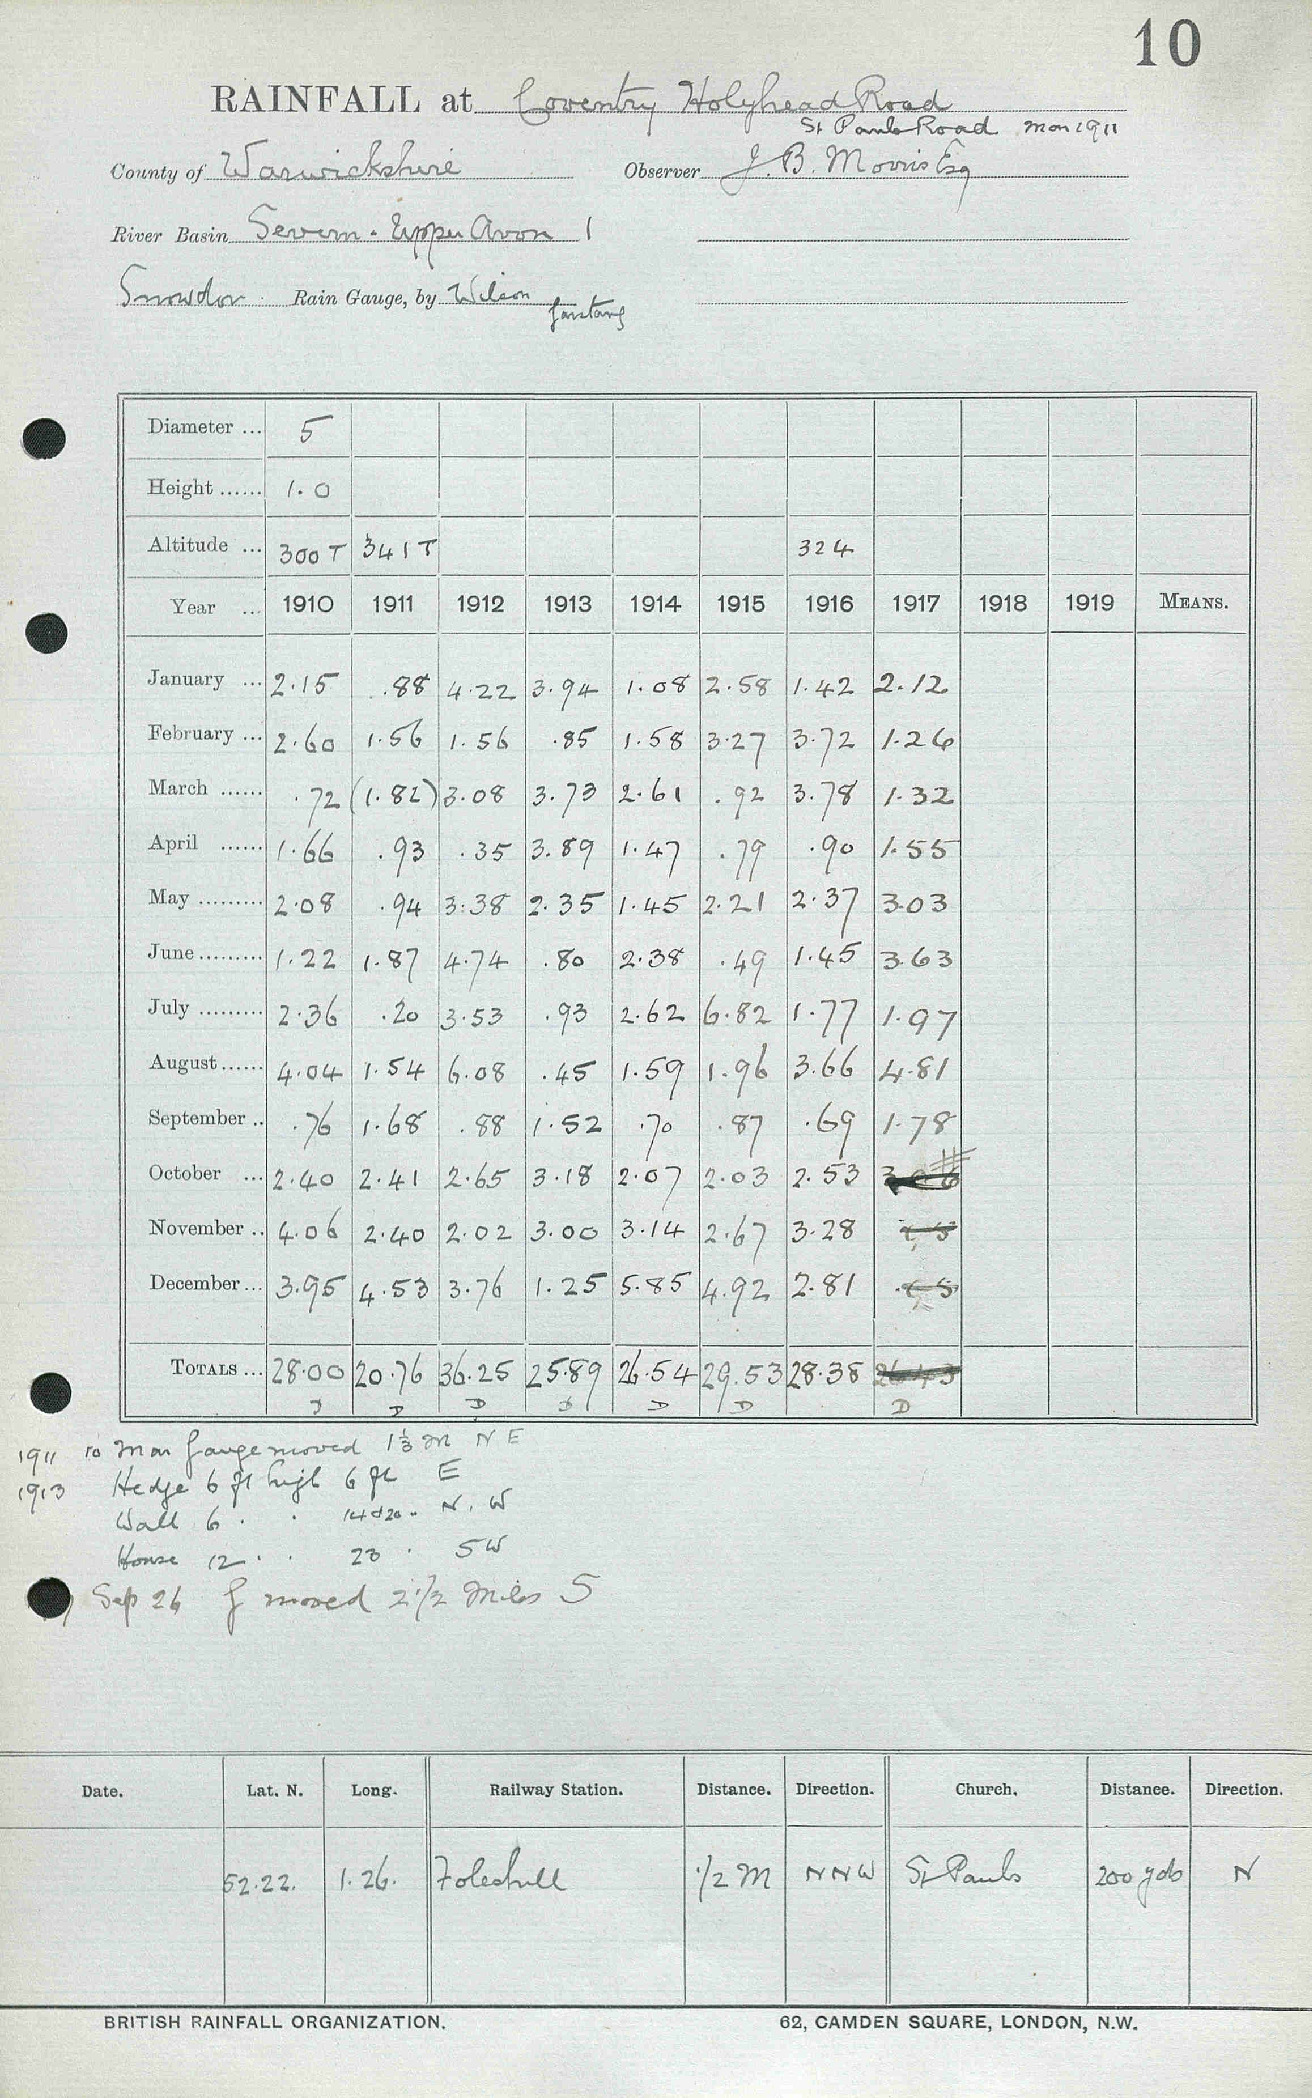 10
RAINFALL at Coventry Holyhead Road
St Pauls Road Mar 1911
County of Warwickshire Observer J. B. Morris Esq
River Basin Severn - Upper Avon 1
Snowdon Rain Gauge, by Wilson
Diameter ... 5
Height ...... 1.0
Altitude ... 300 T 341 T 324
Year ... 1910 1911 1912 1913 1914 1915 1916 1917 1918 1919 MEANS.
January ... 2.15 .88 4.22 3.94 1.08 2.58 1.42 2.12
February ... 2.60 1.56 1.56 .85 1.58 3.27 3.72 1.26
March ...... .72 (1.82) 3.08 3.73 2.61 .92 3.78 1.32
April ...... 1.66 .93 .35 3.89 1.47 .79 .90 1.55
May ......... 2.08 .94 3.38 2.35 1.45 2.21 2.37 3.03
June ......... 1.22 1.87 4.74 .80 2.38 .49 1.45 3.63
July ......... 2.36 .20 3.53 .93 2.62 6.82 1.77 1.97
August ...... 4.04 1.54 6.08 .45 1.59 1.96 3.66 4.81
September .. .76 1.68 .88 1.52 .70 .87 .69 1.78
October ... 2.40 2.41 2.65 3.18 2.07 2.03 2.53
November .. 4.06 2.40 2.02 3.00 3.14 2.67 3.28
December ... 3.95 4.53 3.76 1.25 5.85 4.92 2.81
TOTALS ... 28.00 20.76 36.25 25.89 26.54 29.53 28.38
D D D D D D D
1911 10 Mar Gauge moved 1 1/3 M NE
1913 Hedge 6 ft high 6 ft E
Wall 6 . . 14 & 20 .. N. W
House 12 . . 23 . SW
Sep 26 G moved 2 1/2 Miles S
Date. Lat. N. Long. Railway Station. Distance. Direction. Church. Distance. Direction.
52.22. 1.26. Foleshill 1/2 M NNW St Pauls 200 yds N
BRITISH RAINFALL ORGANIZATION. 62, CAMDEN SQUARE, LONDON, N.W.